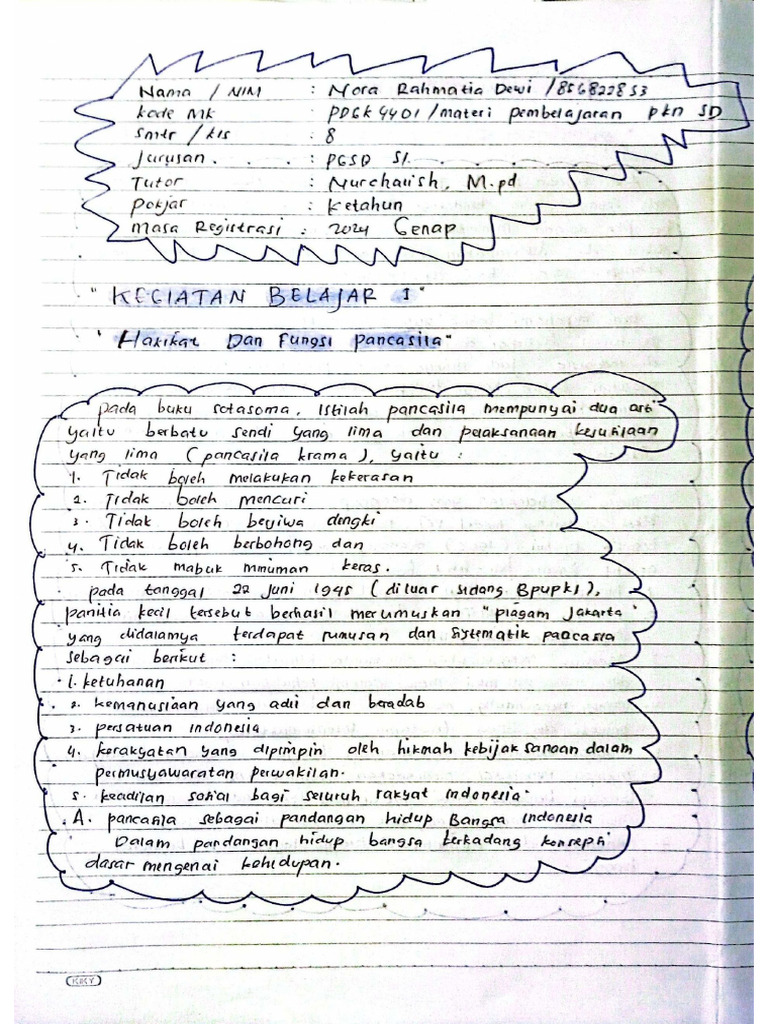 Nama / NIM : Nora Rahmatia Dewi / 856822853
Kode Mk : PDGK 4401 / materi pembelajaran pkn SD
Smtr / kls : 8
Jurusan . . . : PGSD S1.
Tutor : Nurchalish, M.pd
Pokjar : Ketahun
Masa Registrasi : 2024 Genap
"KEGIATAN BELAJAR 1"
"Hakikat Dan Fungsi Pancasila"
pada buku sotasoma, Istilah pancasila mempunyai dua arti
yaitu berbatu sendi yang lima dan pelaksanaan kesusilaan
yang lima (pancasila krama), yaitu :
1. Tidak boleh melakukan kekerasan
2. Tidak boleh mencuri
3. Tidak boleh berjiwa dengki
4. Tidak boleh berbohong dan
5. Tidak mabuk minuman keras.
pada tanggal 22 Juni 1945 (diluar sidang BPUPKI),
panitia kecil tersebut berhasil merumuskan "piagam Jakarta"
yang didalamya terdapat rumusan dan sistematik pancasia
sebagai berikut :
1. ketuhanan
2. kemanusiaan yang adil dan beradab
3. persatuan indonesia
4. kerakyatan yang dipimpin oleh hikmah kebijaksanaan dalam
permusyawaratan perwakilan.
5. keadilan sosial bagi seluruh rakyat indonesia.
A. pancasila sebagai pandangan hidup Bangsa indonesia
Dalam pandangan hidup bangsa terkadang konsepsi
dasar mengenai kehidupan.
KKY